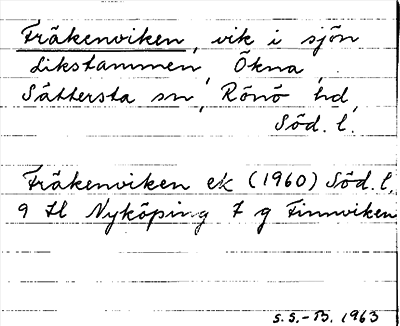 Fräkenviken, vik i sjön
Likstammen, Ökna,
Sättersta sn, Rönö hd,
Söd. l.
Fräkenviken ek (1960) Söd. l,
9 H l Nyköping 7 g Finnviken
S.S.-B. 1963